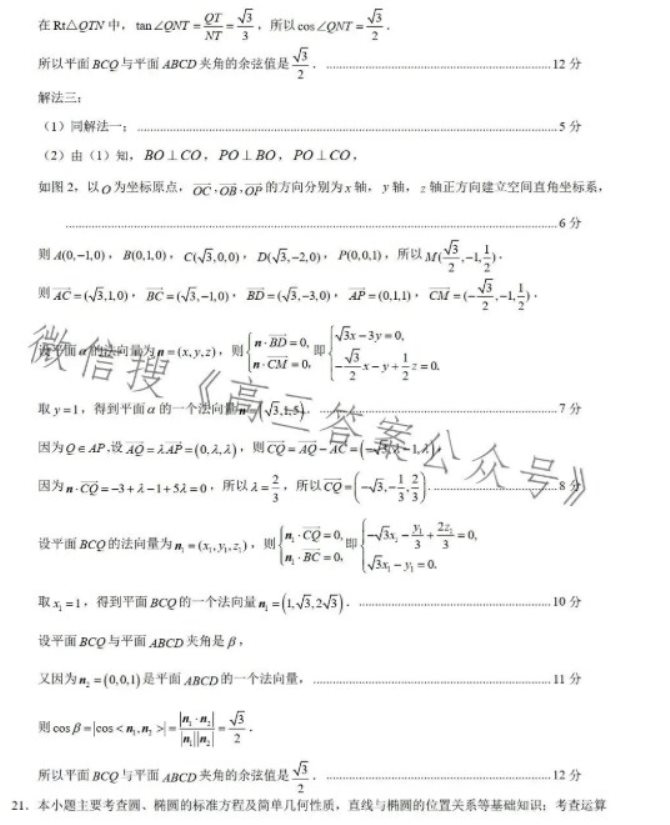 在 Rt△QTN 中，tan∠QNT = QT/NT = √3/3，所以 cos∠QNT = √3/2．
所以平面 BCQ 与平面 ABCD 夹角的余弦值是 √3/2．……12 分
解法三：
（1）同解法一；……5 分
（2）由（1）知，BO⊥CO，PO⊥BO，PO⊥CO，
如图 2，以 O 为坐标原点，OC，OB，OP 的方向分别为 x 轴，y 轴，z 轴正方向建立空间直角坐标系，
……6 分
则 A(0,−1,0)，B(0,1,0)，C(√3,0,0)，D(√3,−2,0)，P(0,0,1)，所以 M(√3/2,−1,1/2)．
则 AC=(√3,1,0)，BC=(√3,−1,0)，BD=(√3,−3,0)，AP=(0,1,1)，CM=(−√3/2,−1,1/2)．
设平面 α 的法向量为 n=(x,y,z)，则 {n·BD=0, n·CM=0, 即 {√3x−3y=0, −√3/2 x−y+1/2 z=0.
取 y=1，得到平面 α 的一个法向量 n=(√3,1,5)．……7 分
因为 Q∈AP，设 AQ=λAP=(0,λ,λ)，则 CQ=AQ−AC=(−√3,λ−1,λ)，
因为 n·CQ=−3+λ−1+5λ=0，所以 λ=2/3，所以 CQ=(−√3,−1/3,2/3)．……8 分
设平面 BCQ 的法向量为 n₁=(x₁,y₁,z₁)，则 {n₁·CQ=0, n₁·BC=0, 即 {−√3x₁−y₁/3+2z₁/3=0, √3x₁−y₁=0.
取 x₁=1，得到平面 BCQ 的一个法向量 n₁=(1,√3,2√3)．……10 分
设平面 BCQ 与平面 ABCD 夹角是 β，
又因为 n₂=(0,0,1) 是平面 ABCD 的一个法向量，……11 分
则 cosβ=|cos<n₁,n₂>|=|n₁·n₂|/|n₁||n₂|=√3/2．
所以平面 BCQ 与平面 ABCD 夹角的余弦值是 √3/2．……12 分
21．本小题主要考查圆、椭圆的标准方程及简单几何性质，直线与椭圆的位置关系等基础知识；考查运算
微信搜《高三答案公众号》